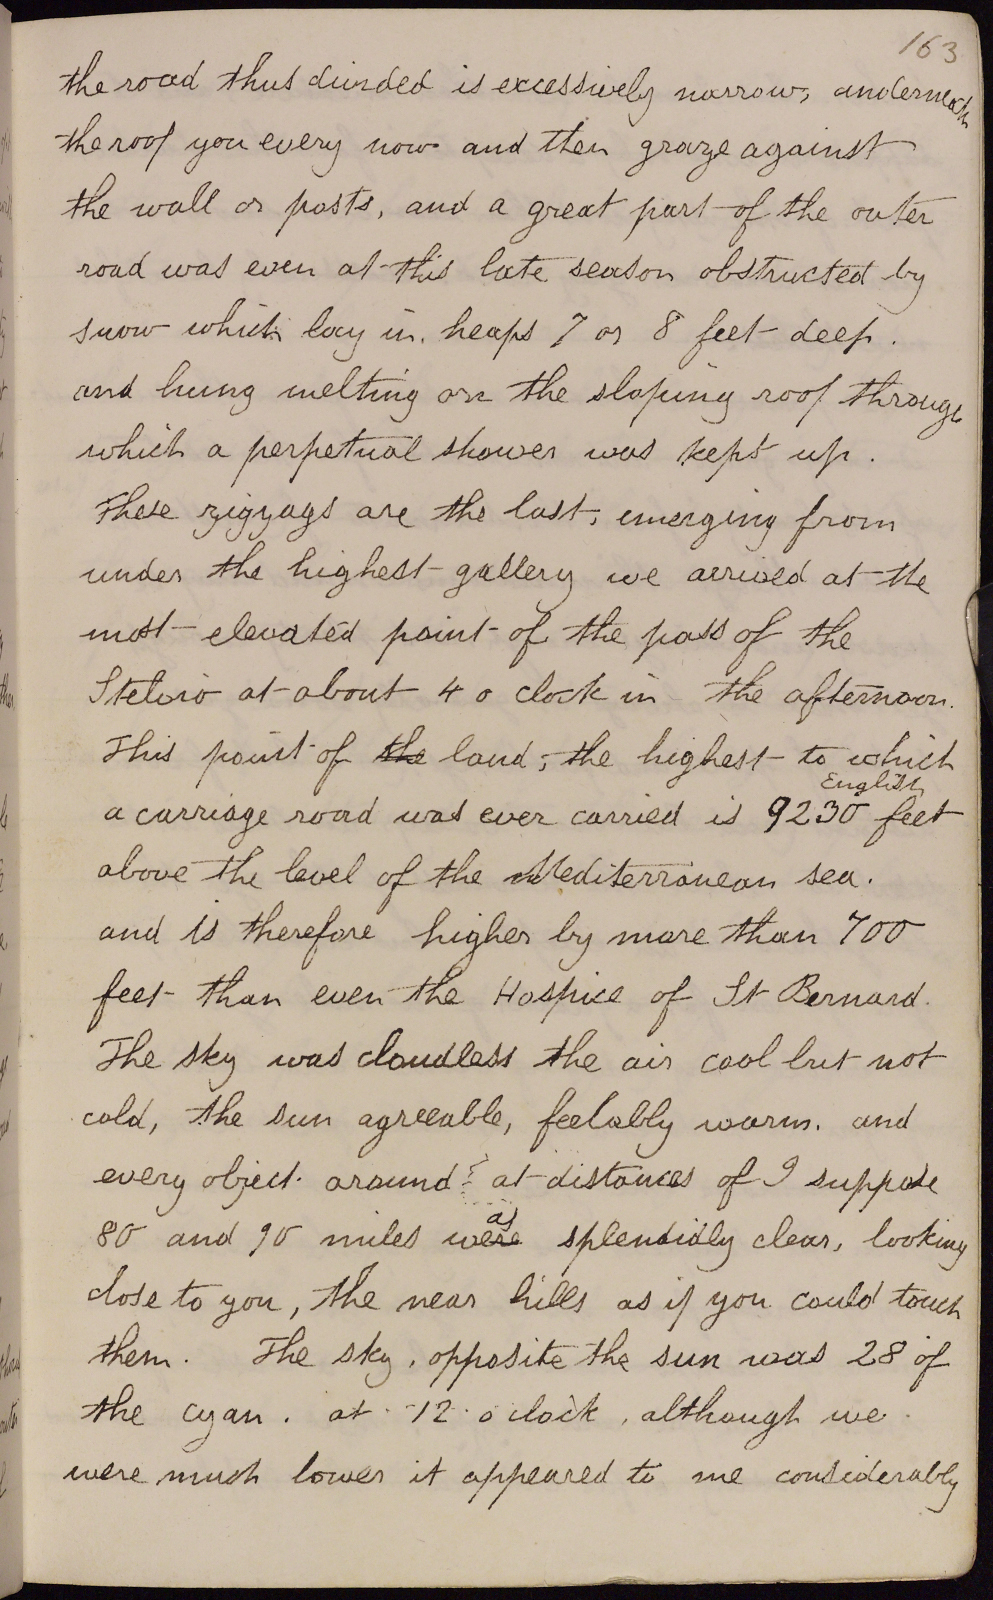 163
the road thus divided is excessively narrow, underneath
the roof you every now and then graze against
the wall or posts, and a great part of the outer
road was even at this late season obstructed by
snow which lay in heaps 7 or 8 feet deep.
and hung melting on the sloping roof through
which a perpetual shower was kept up.
These zigzags are the last, emerging from
under the highest gallery we arrived at the
most elevated point of the pass of the
Stelvio at about 4 o clock in the afternoon.
This point of the land, the highest to which
English
a carriage road was ever carried is 9230 feet
above the level of the Mediterranean sea.
and is therefore higher by more than 700
feet than even the Hospice of St Bernard.
The sky was cloudless the air cool but not
cold, the sun agreeable, feelably warm. and
every object around at distances of I suppose
as
80 and 90 miles were splendidly clear, looking
close to you, the near hills as if you could touch
them. The sky, opposite the sun was 28 of
the cyan. at 12 o clock, although we
were much lower it appeared to me considerably